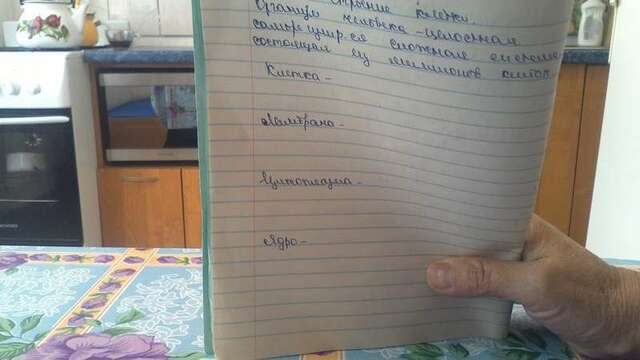 строение клетки.
Организм человека - целостная
саморегулир-ся сложная система
состоящая из миллионов клеток
Клетка -
Мембрана -
Цитоплазма -
Ядро -